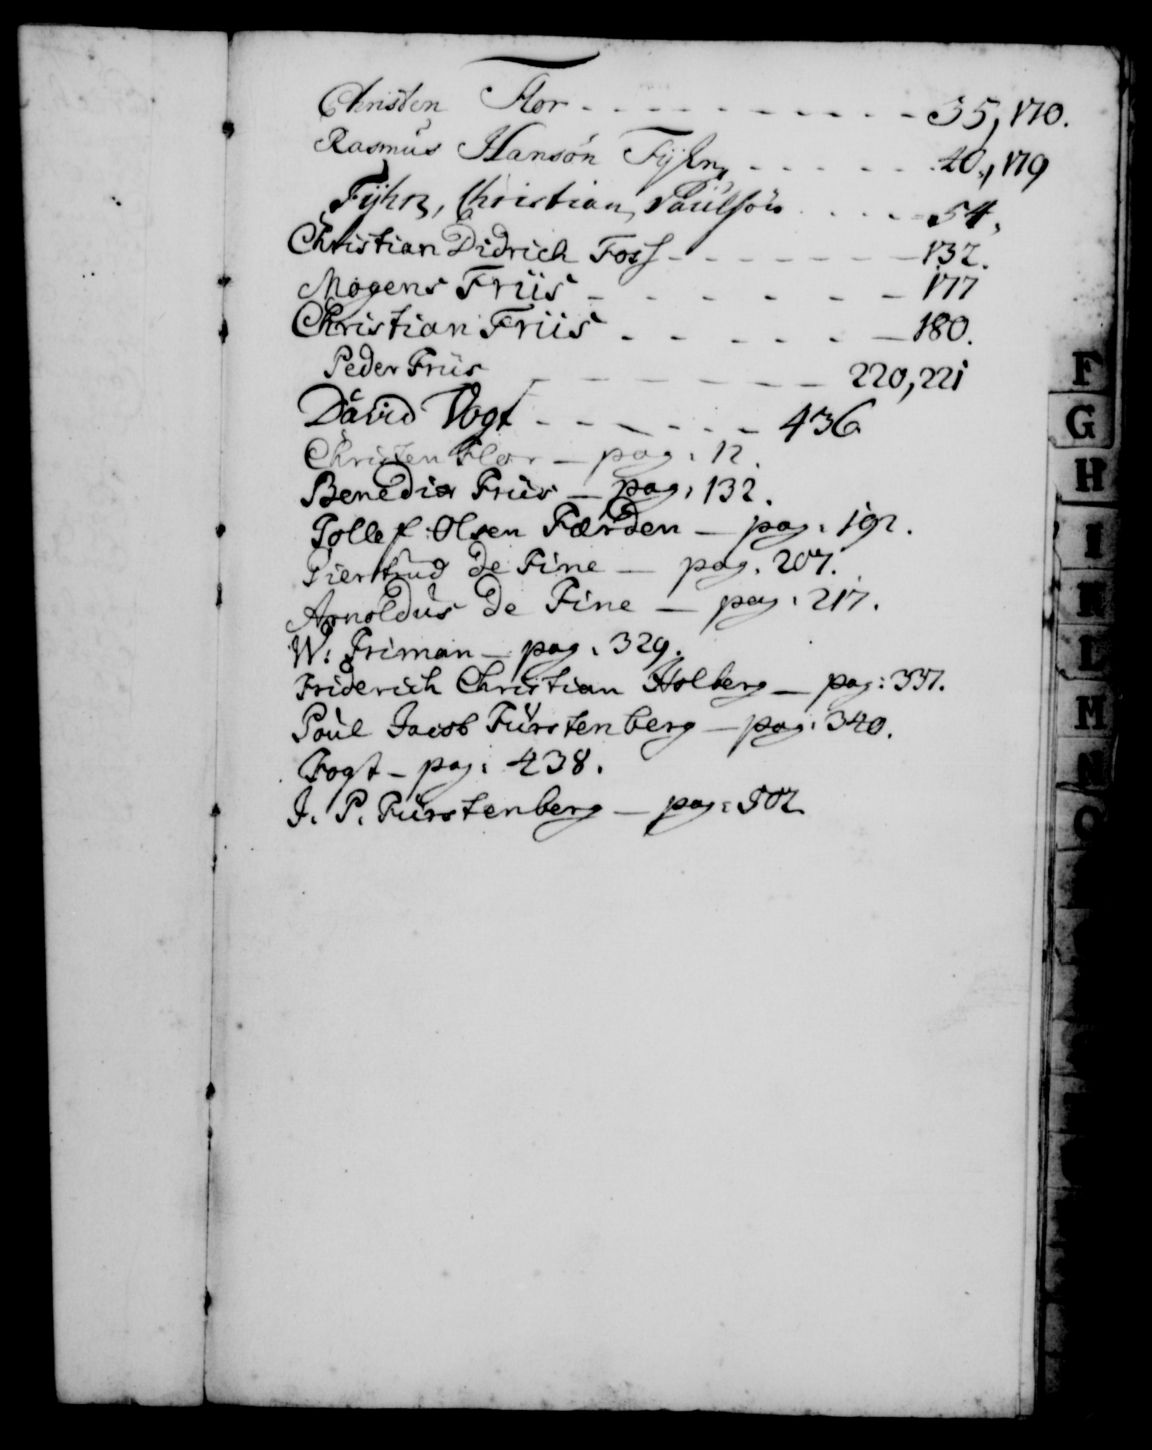 Christen Flor - - - - - - - - - - 35, 170.
Rasmus Hansøn Fyhn - - - - - - 40., 179
Fyhn, Christian Paulsøn - - - - 54.
Christian Didrich Foss - - - - - - - 132.
Mogens Friis - - - - - - 177
Christian Friis - - - - - - 180.
Peder Friis - - - - - - - 220, 221
David Vogt - - - - - - 436
Christen Flor - pag: 12.
Benedix Friis - pag: 132.
Tollef Olsen Færden - pag: 192.
de Fine - pag. 207.
Arnoldus de Fine - pag: 217.
W: Friman - pag: 329.
Friderich Christian Holberg - pag: 337.
Poul Jacob Fürstenberg - pag: 340.
Fogt - pag: 438.
J. P. Fürstenberg - pag: 502
F
G
H
I
K
L
M
N
O